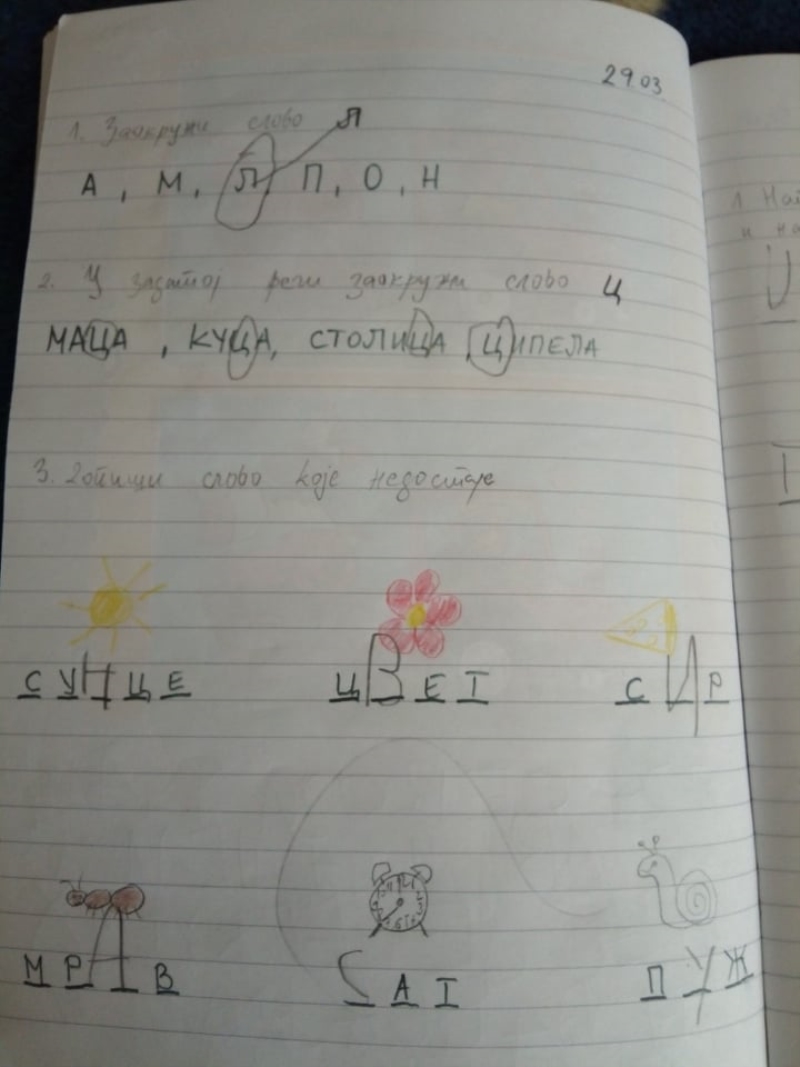 29.03
1. Заокружи слово Л
А, М, Л, П, О, Н
2. У задатој речи заокружи слово Ц
МАЦА, КУЦА, СТОЛИЦА, ЦИПЕЛА
3. Допиши слово које недостаје
СУНЦЕ ЦВЕТ СИР
МРАВ САТ ПУЖ